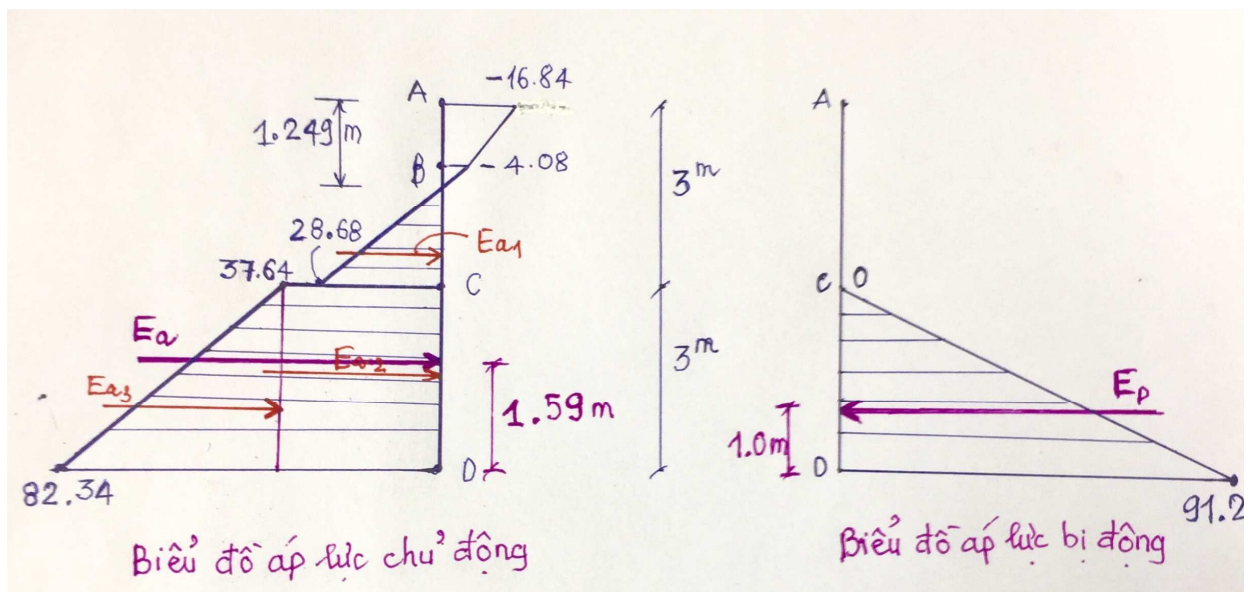 -16.84
A
1.249 m
B
-4.08
3ᵐ
28.68
Ea1
37.64
C
Ea
Ea2
3ᵐ
Ea3
1.59m
D
82.34
Biểu đồ áp lực chủ động
A
C
0
Ep
1.0m
D
91.2
Biểu đồ áp lực bị động